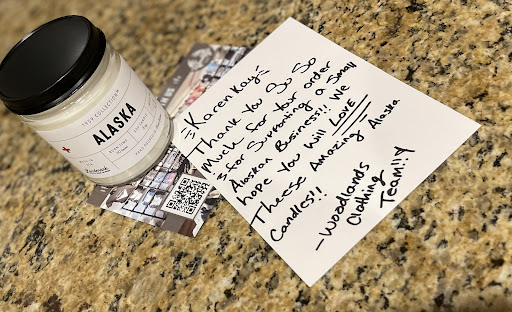 TRUE COLLECTION
ALASKA
Karen Kay!
Thank You So So
Much for Your order
& for Supporting a Small
Alaskan Business!! We
hope You Will LOVE
Theese Amazing Alaska
Candles!!
- Woodlands
Clothing
Team!!